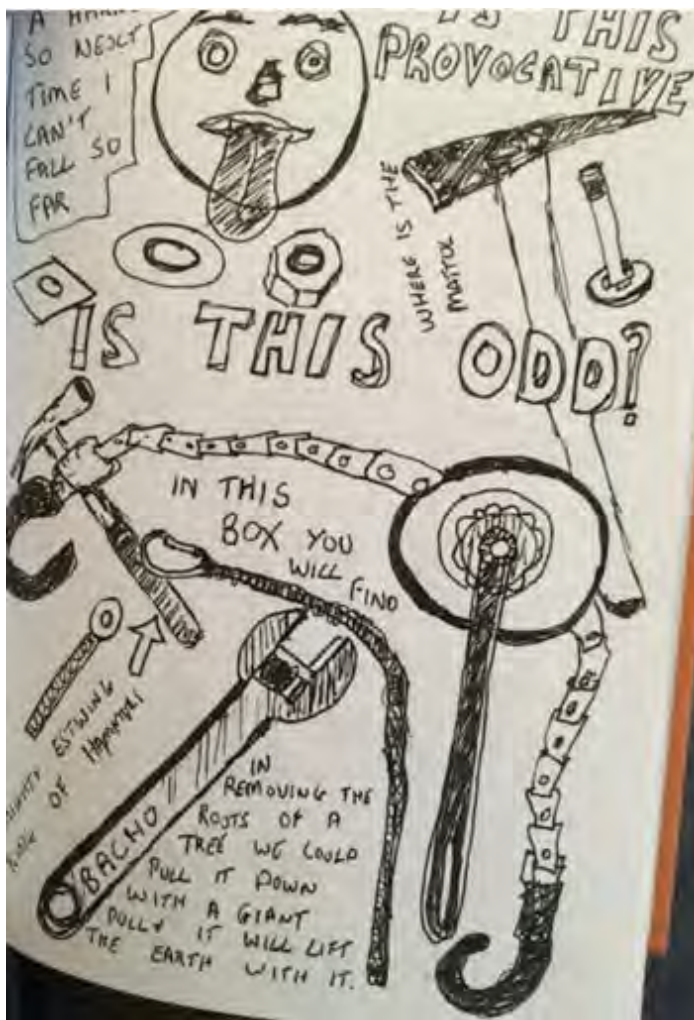 A
SO NEXT
TIME I
CAN'T
FALL SO
FAR
IS THIS
PROVOCATIVE
WHERE IS THE
MATTOC
IS THIS ODD?
IN THIS
BOX YOU
WILL
FIND
ESTWING
OF HAMMERS
BACHO
IN
REMOVING THE
ROOTS OF A
TREE WE COULD
PULL IT DOWN
WITH A GIANT
PULLY IT WILL LIFT
THE EARTH WITH IT.